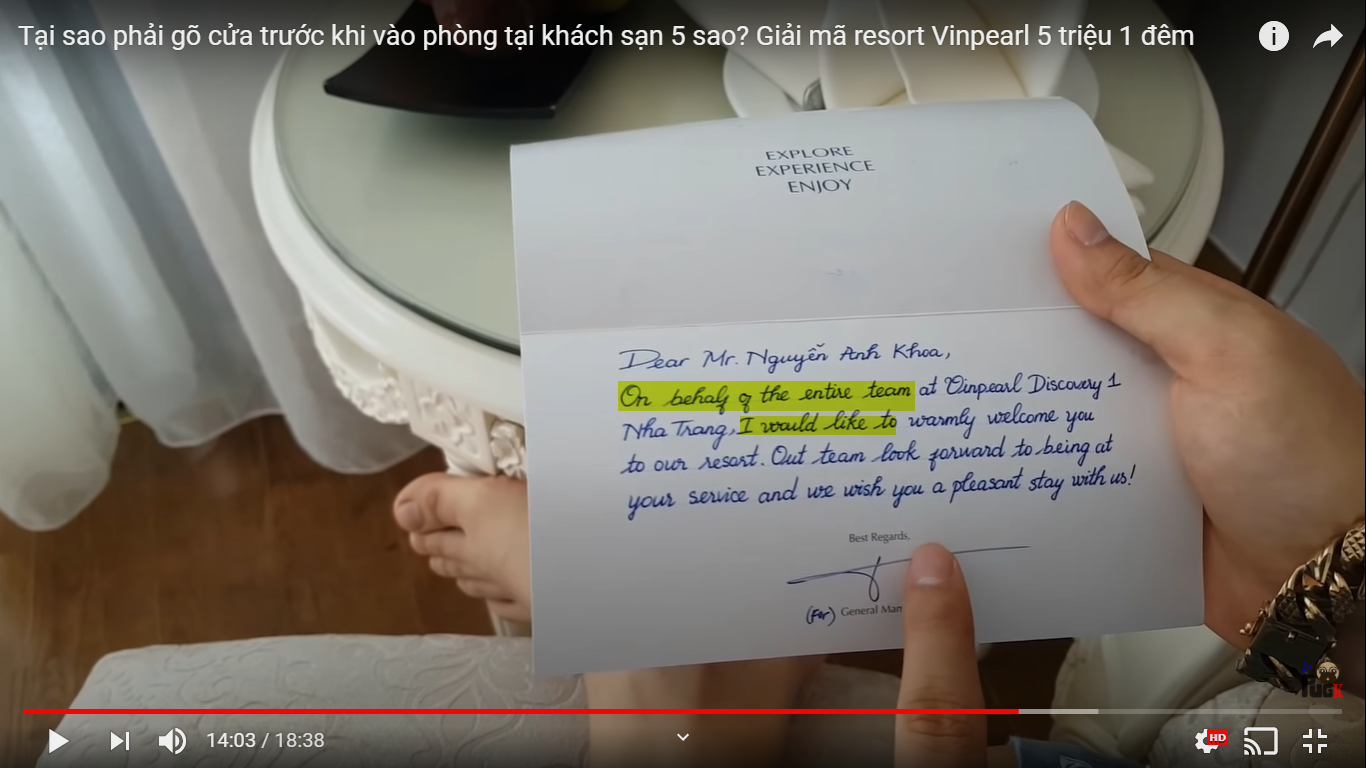 Tại sao phải gõ cửa trước khi vào phòng tại khách sạn 5 sao? Giải mã resort Vinpearl 5 triệu 1 đêm
EXPLORE
EXPERIENCE
ENJOY
Dear Mr. Nguyễn Anh Khoa,
On behalf of the entire team at Vinpearl Discovery 1
Nha Trang, I would like to warmly welcome you
to our resort. Out team look forward to being at
your service and we wish you a pleasant stay with us!
Best Regards,
(For) General Man
14:03 / 18:38
HD